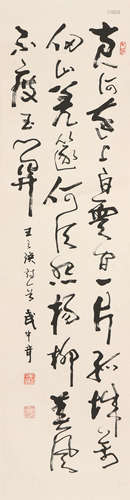 黄河远上白云间一片孤城万
仞山羌笛何须怨杨柳春风
不度玉门关
王之涣诗一首